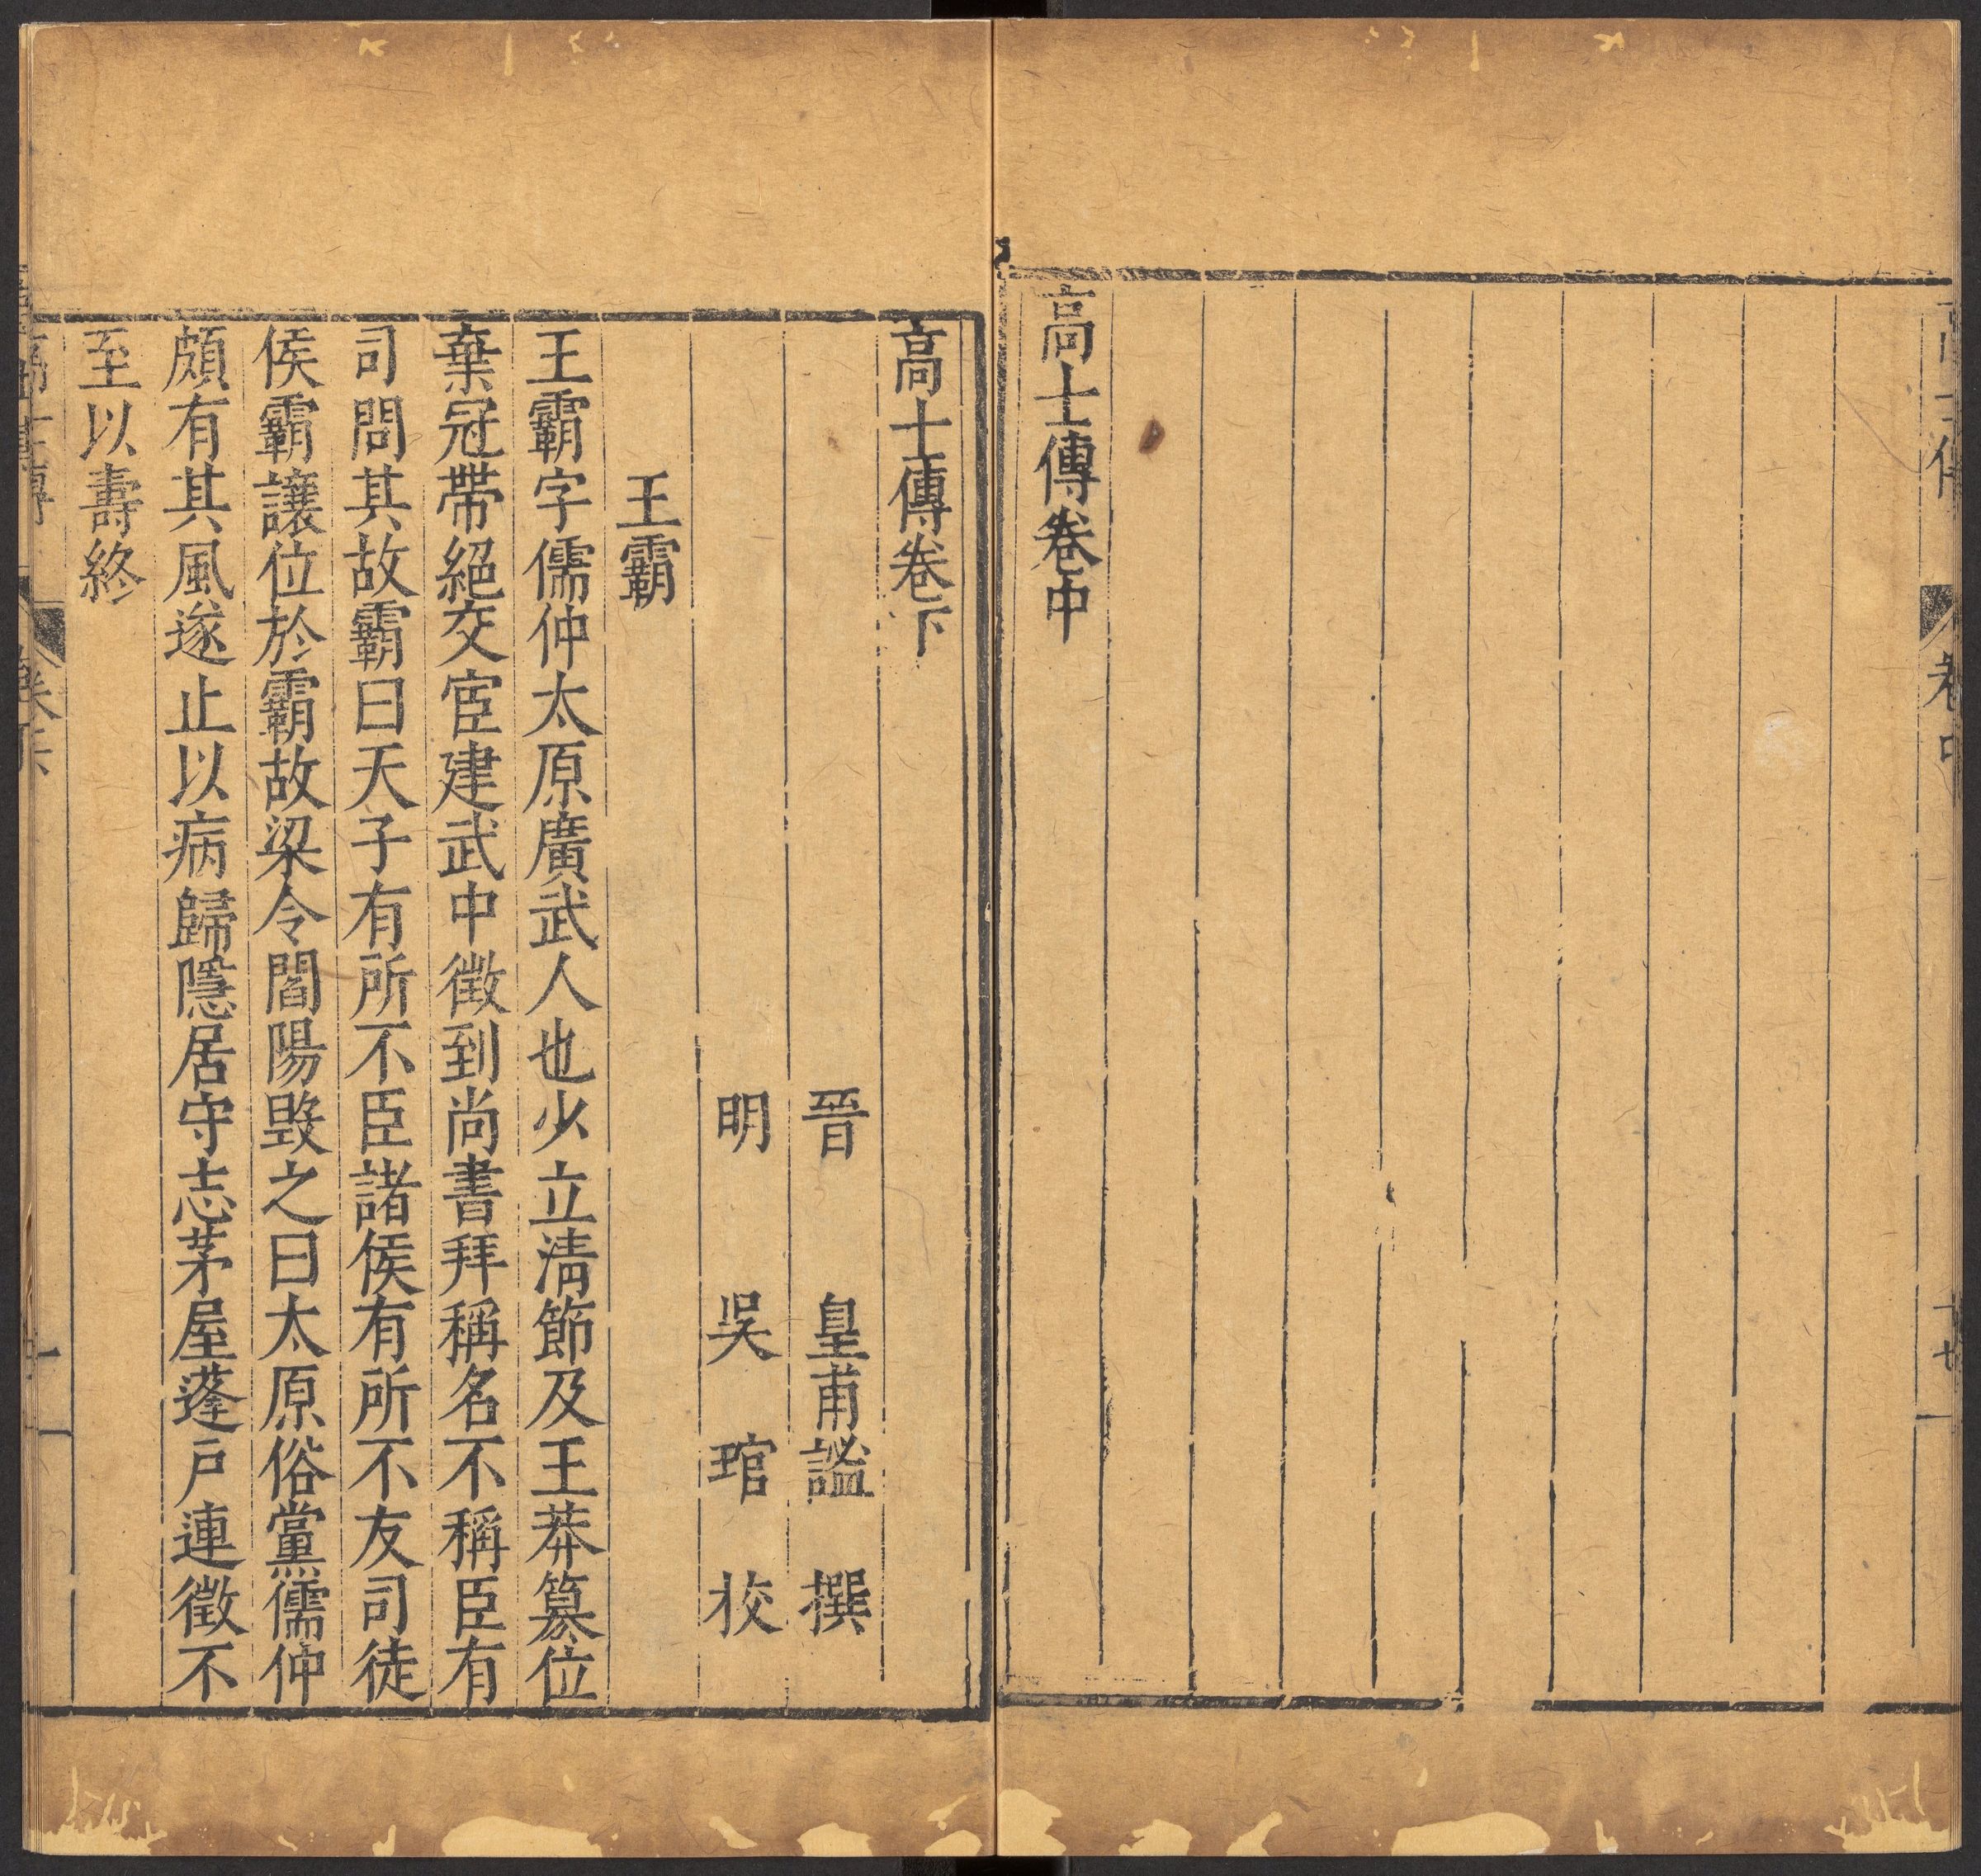 高士傳卷中
高士傳卷下
晉 皇甫謐 撰
明 吳琯 校
王霸
王霸字儒仲太原廣武人也少立清節及王莽篡位
棄冠帶絕交宦建武中徵到尚書拜稱名不稱臣有
司問其故霸曰天子有所不臣諸侯有所不友司徒
侯霸讓位於霸故梁令閻陽毀之曰太原俗黨儒仲
頗有其風遂止以病歸隱居守志茅屋蓬戶連徵不
至以壽終